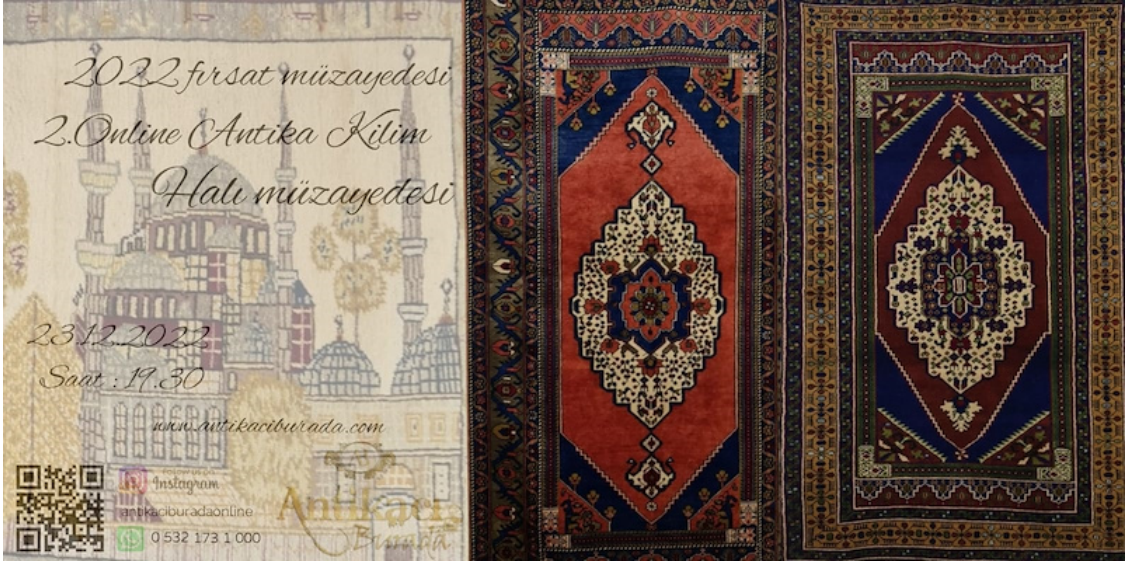 2022 fırsat müzayedesi
2.Online Antika Kilim
Halı müzayedesi
23.12.2022
Saat : 19.30
www.antikaciburada.com
Instagram
antikaciburadaonline
0 532 173 1 000
Antikacı
Burada